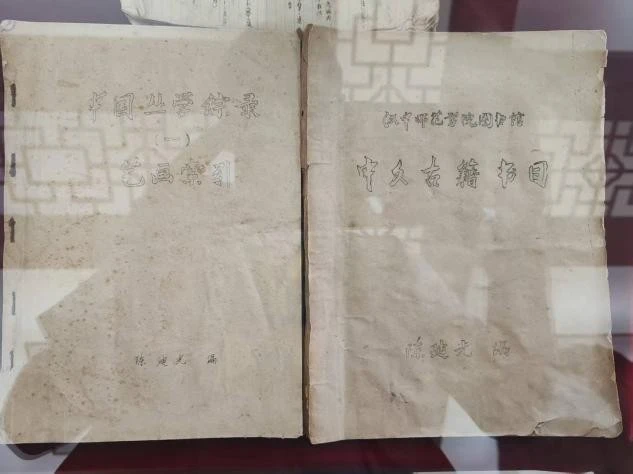 中国丛学综录
(一)
艺画索引
陈建光 编
汉中师范学院图书馆
中文古籍书目
陈建光 编